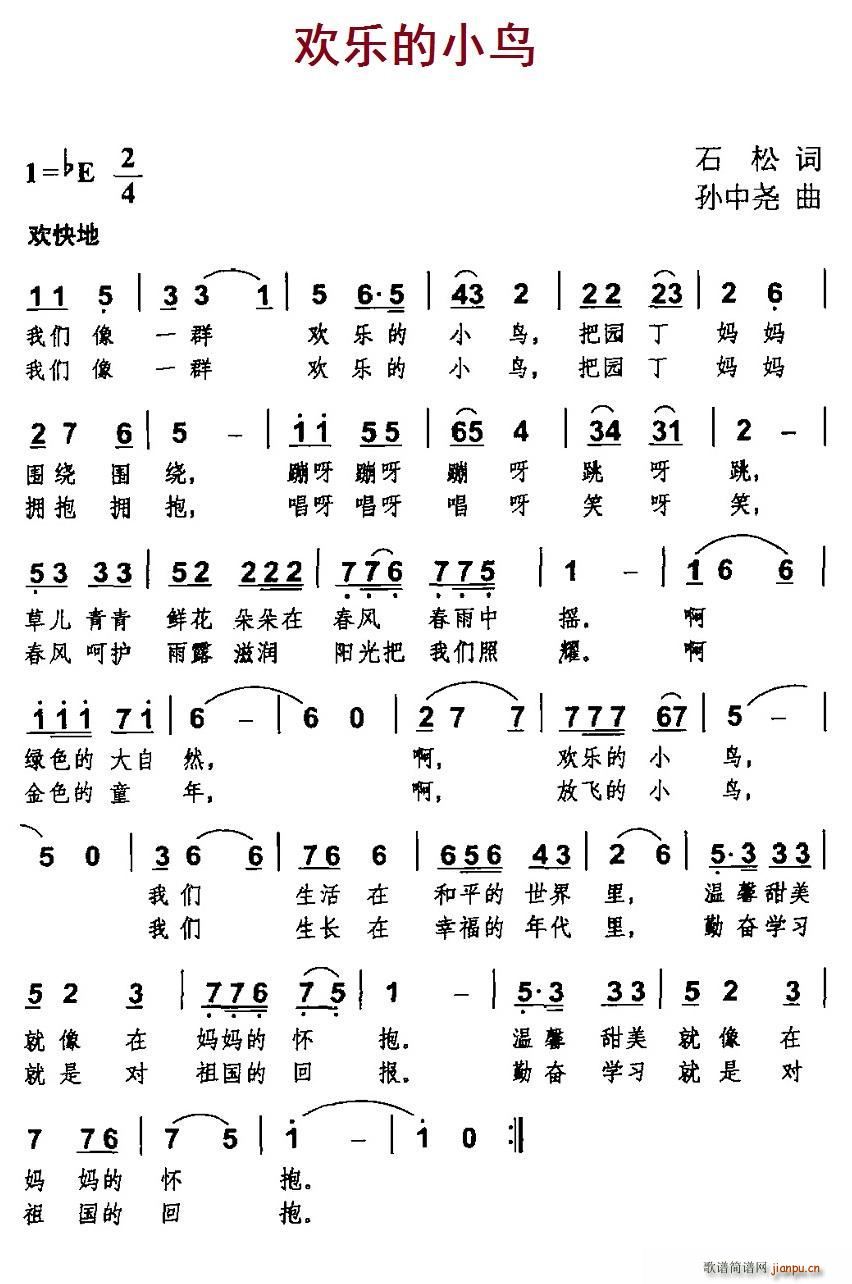 欢乐的小鸟
1=♭E 2/4
石 松 词
孙中尧 曲
欢快地
1 1 5 | 3 3 1 | 5 6·5 | 43 2 | 22 23 | 2 6 |
我们 像 一 群 欢 乐 的 小 鸟, 把园 丁 妈 妈
我们 像 一 群 欢 乐 的 小 鸟, 把园 丁 妈 妈
2 7 6 | 5 – | i i 55 | 65 4 | 34 31 | 2 – |
围 绕 围 绕, 蹦呀 蹦呀 蹦 呀 跳 呀 跳,
拥 抱 拥 抱, 唱呀 唱呀 唱 呀 笑 呀 笑,
53 33 | 52 222 | 776 775 | 1 – | 1 6 6 |
草儿 青青 鲜花 朵朵在 春风 春雨中 摇. 啊
春风 呵护 雨露 滋润 阳光把 我们照 耀. 啊
i i i 7 i | 6 – | 6 0 | 2 7 7 | 777 67 | 5 – |
绿色的 大自 然, 啊, 欢乐的 小 鸟,
金色的 童 年, 啊, 放飞的 小 鸟,
5 0 | 3 6 6 | 76 6 | 656 43 | 2 6 | 5·3 33 |
我 们 生活 在 和平的 世界 里, 温 馨 甜美
我 们 生长 在 幸福的 年代 里, 勤 奋 学习
5 2 3 | 776 75 | 1 – | 5·3 33 | 5 2 3 |
就 像 在 妈妈的 怀 抱. 温 馨 甜美 就 像 在
就 是 对 祖国的 回 报. 勤 奋 学习 就 是 对
7 76 | 7 5 | i – | i 0 :‖
妈 妈的 怀 抱.
祖 国的 回 抱.
歌谱简谱网 jianpu.cn